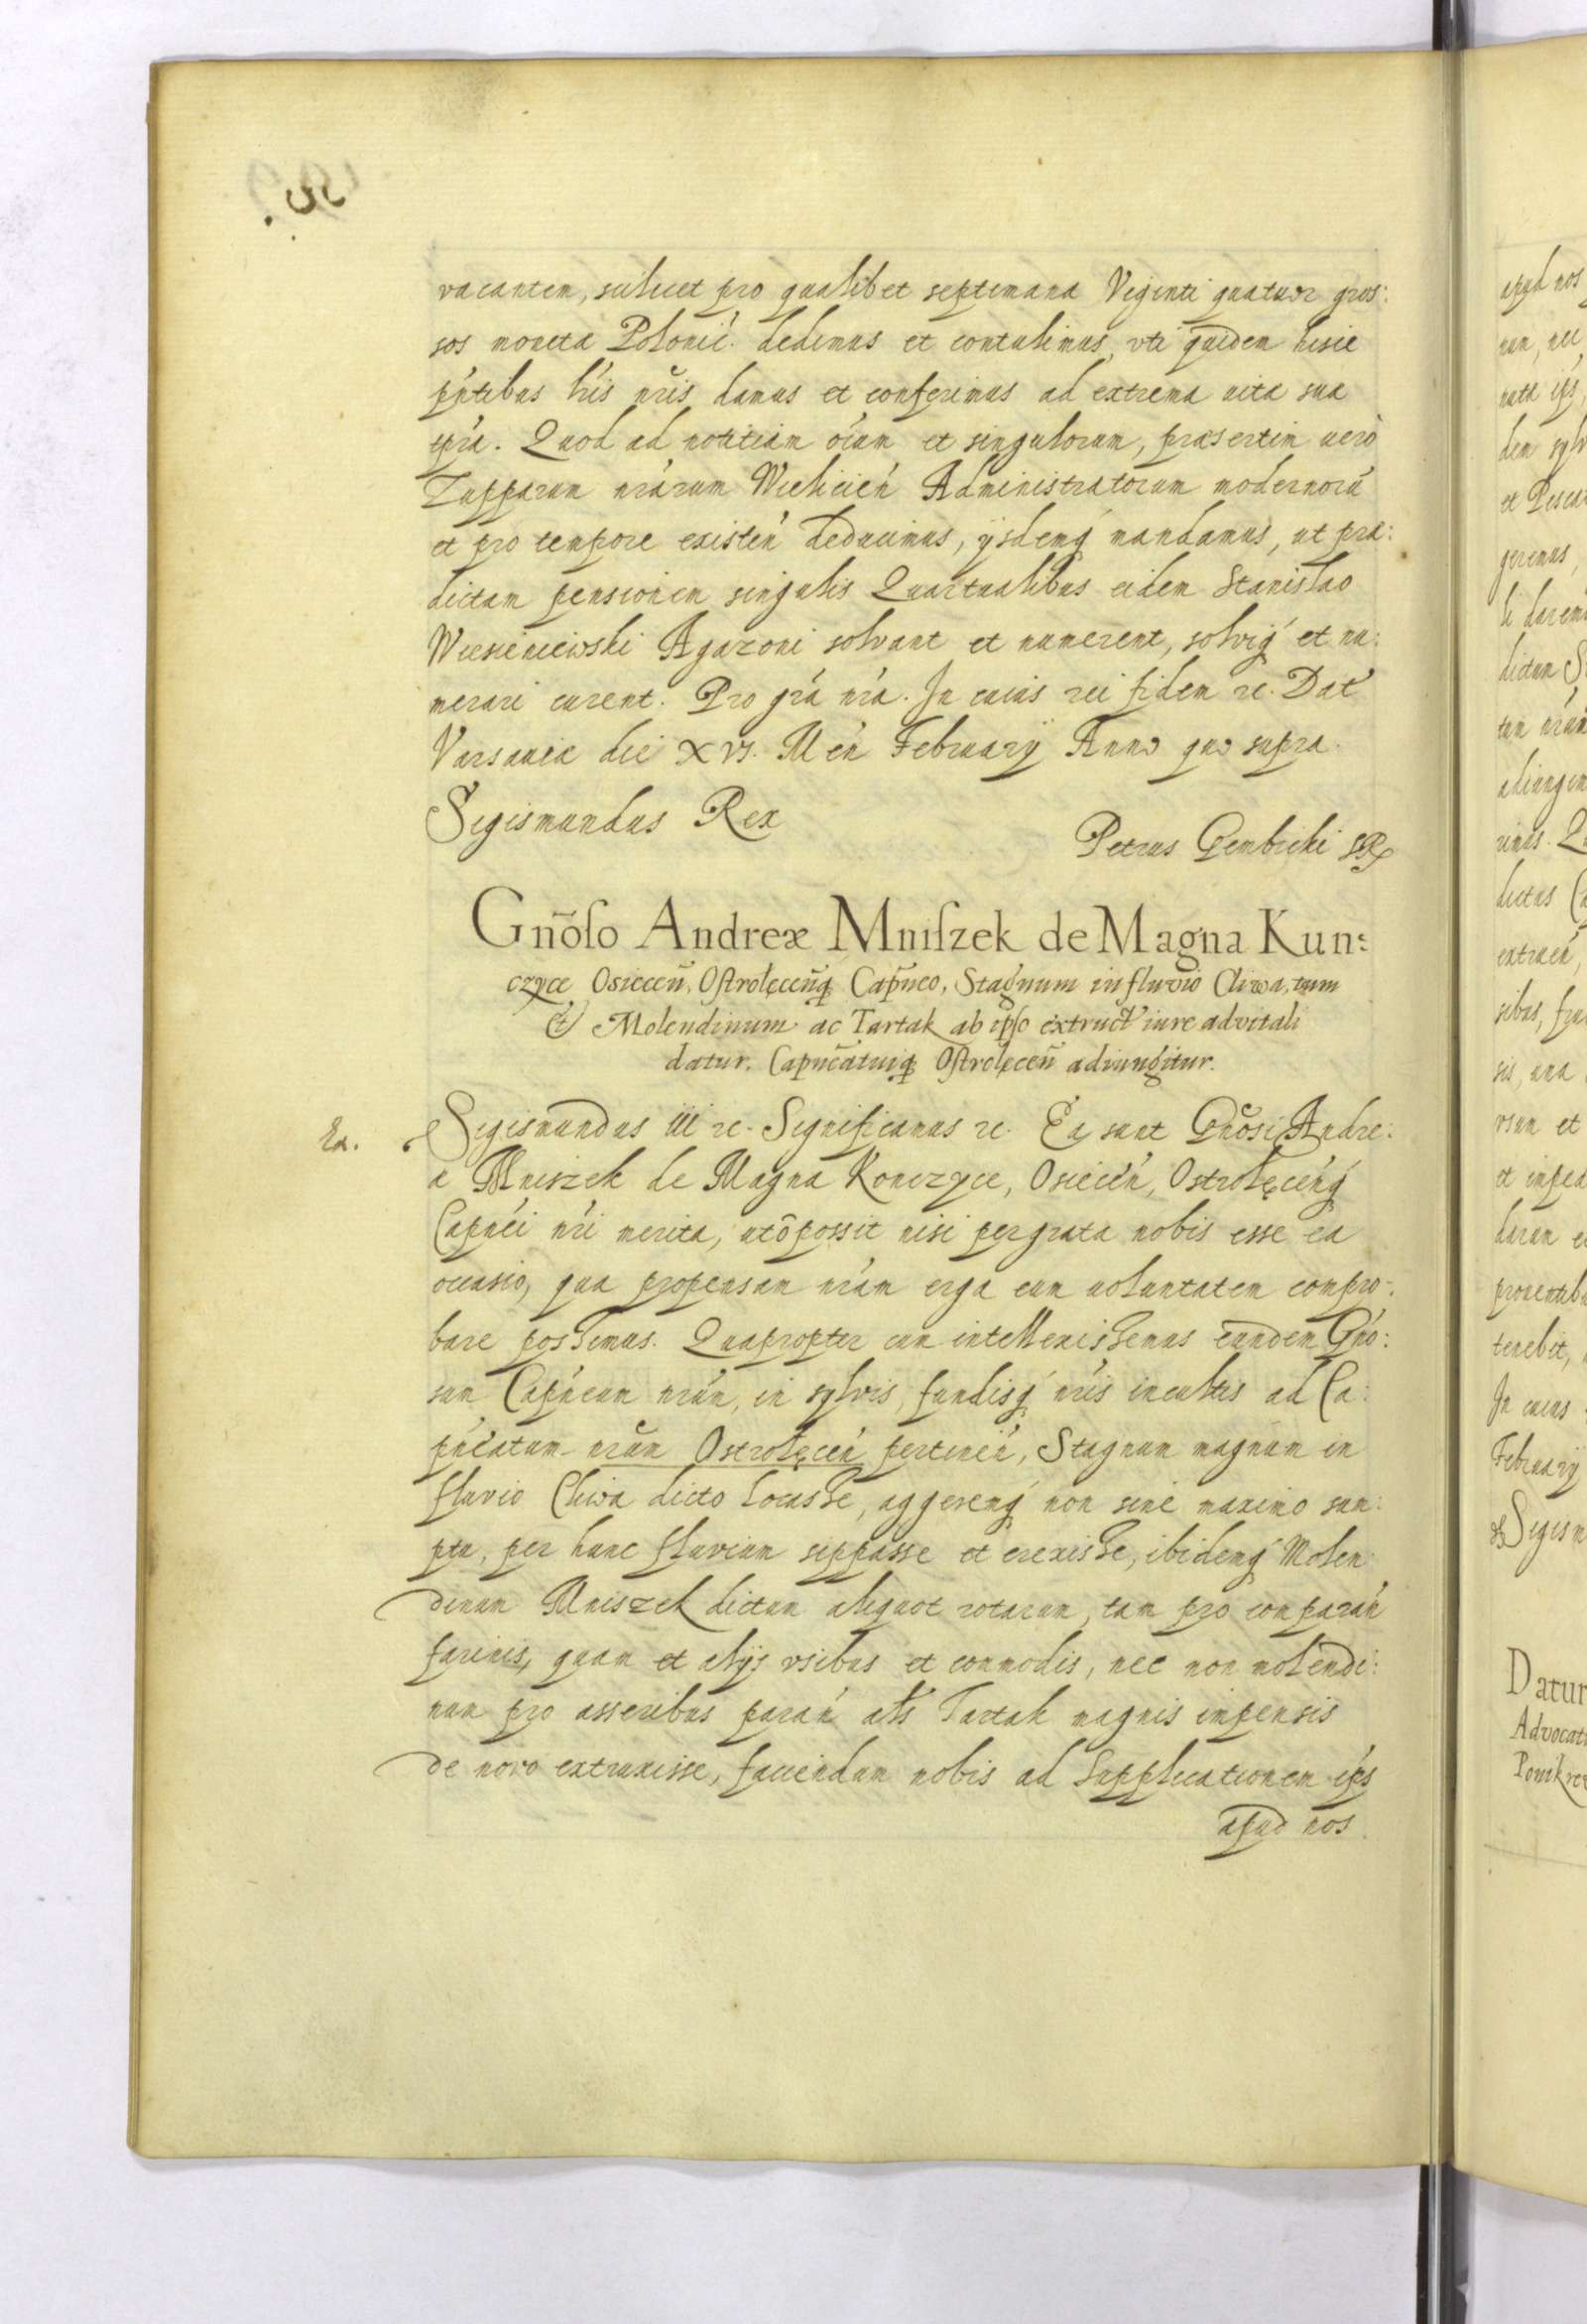 vacantem, scilicet pro qualibet septimana Viginti quatuor gros:
sos moneta Polonić. dedimus et contulimus, vti quidem hisce
pńtibus lŕis nŕis damus et conferimus ad extrema uitæ suæ
tpŕa. Quod ad notitiam oíum et singulorum, præsertim uerò
Zupparum nŕarum Wielicień Administratorum modernorú
et pro tempore existeń deducimus, ijsdemq́ mandamus, ut præ:
dictam pensionem singulis Quartualibus eidem Stanislao
Wiesieniewski Agazoni soluant et numerent, solviq́ et nu:
merari curent. Pro grá nŕa. In cuius rei fidem rc. Dat́
Varsauiæ die XVI. Meń February Anno quo supra.
Sigismundus Rex
Petrus Gembicki SR
Gnõso Andreæ Mniszek de Magna Kun:
czyce Osieceñ, Ostrolęceñq Capñeo, Stagnum in fluvio Cliwa, tum
& Molendinum ac Tartak ab ipso extruct́ iure advitali
datur. Capñeatuiq Ostrolęceñ adiungitur.
Ex.
Sigismundus III rc. Significamus rc. Ea sunt Gnõsi Andre:
æ Mniszek de Magna Konczyce, Osieceń, Ostrolęceńq́
Capńei nŕi merita, ut õ possit nisi pergrata nobis esse ea
occasio, qua propensam nŕam erga eum uoluntatem compro:
bare possimus. Quapropter cum intellexissemus eundem Gńo:
sum Capńeum nŕum, in sylvis, fundisq́ nŕis incultis ad Ca:
pńeatum nŕum Ostrolęceń pertineń, Stagnum magnum in
fluvio Cliwa dicto locasse, aggeremq́ non sine maximo sum:
ptu, per hunc fluvium sippasse et erexisse, ibidemq́ Molen
dinum Mniszek dictum aliquot rotarum, tam pro comparań
farinis, quam et alijs vsibus et commodis, nec non molendi:
num pro asseribus parań als Tartak magnis impensis
de novo extruxisse, faciendum nobis ad supplicationem ips
apud nos